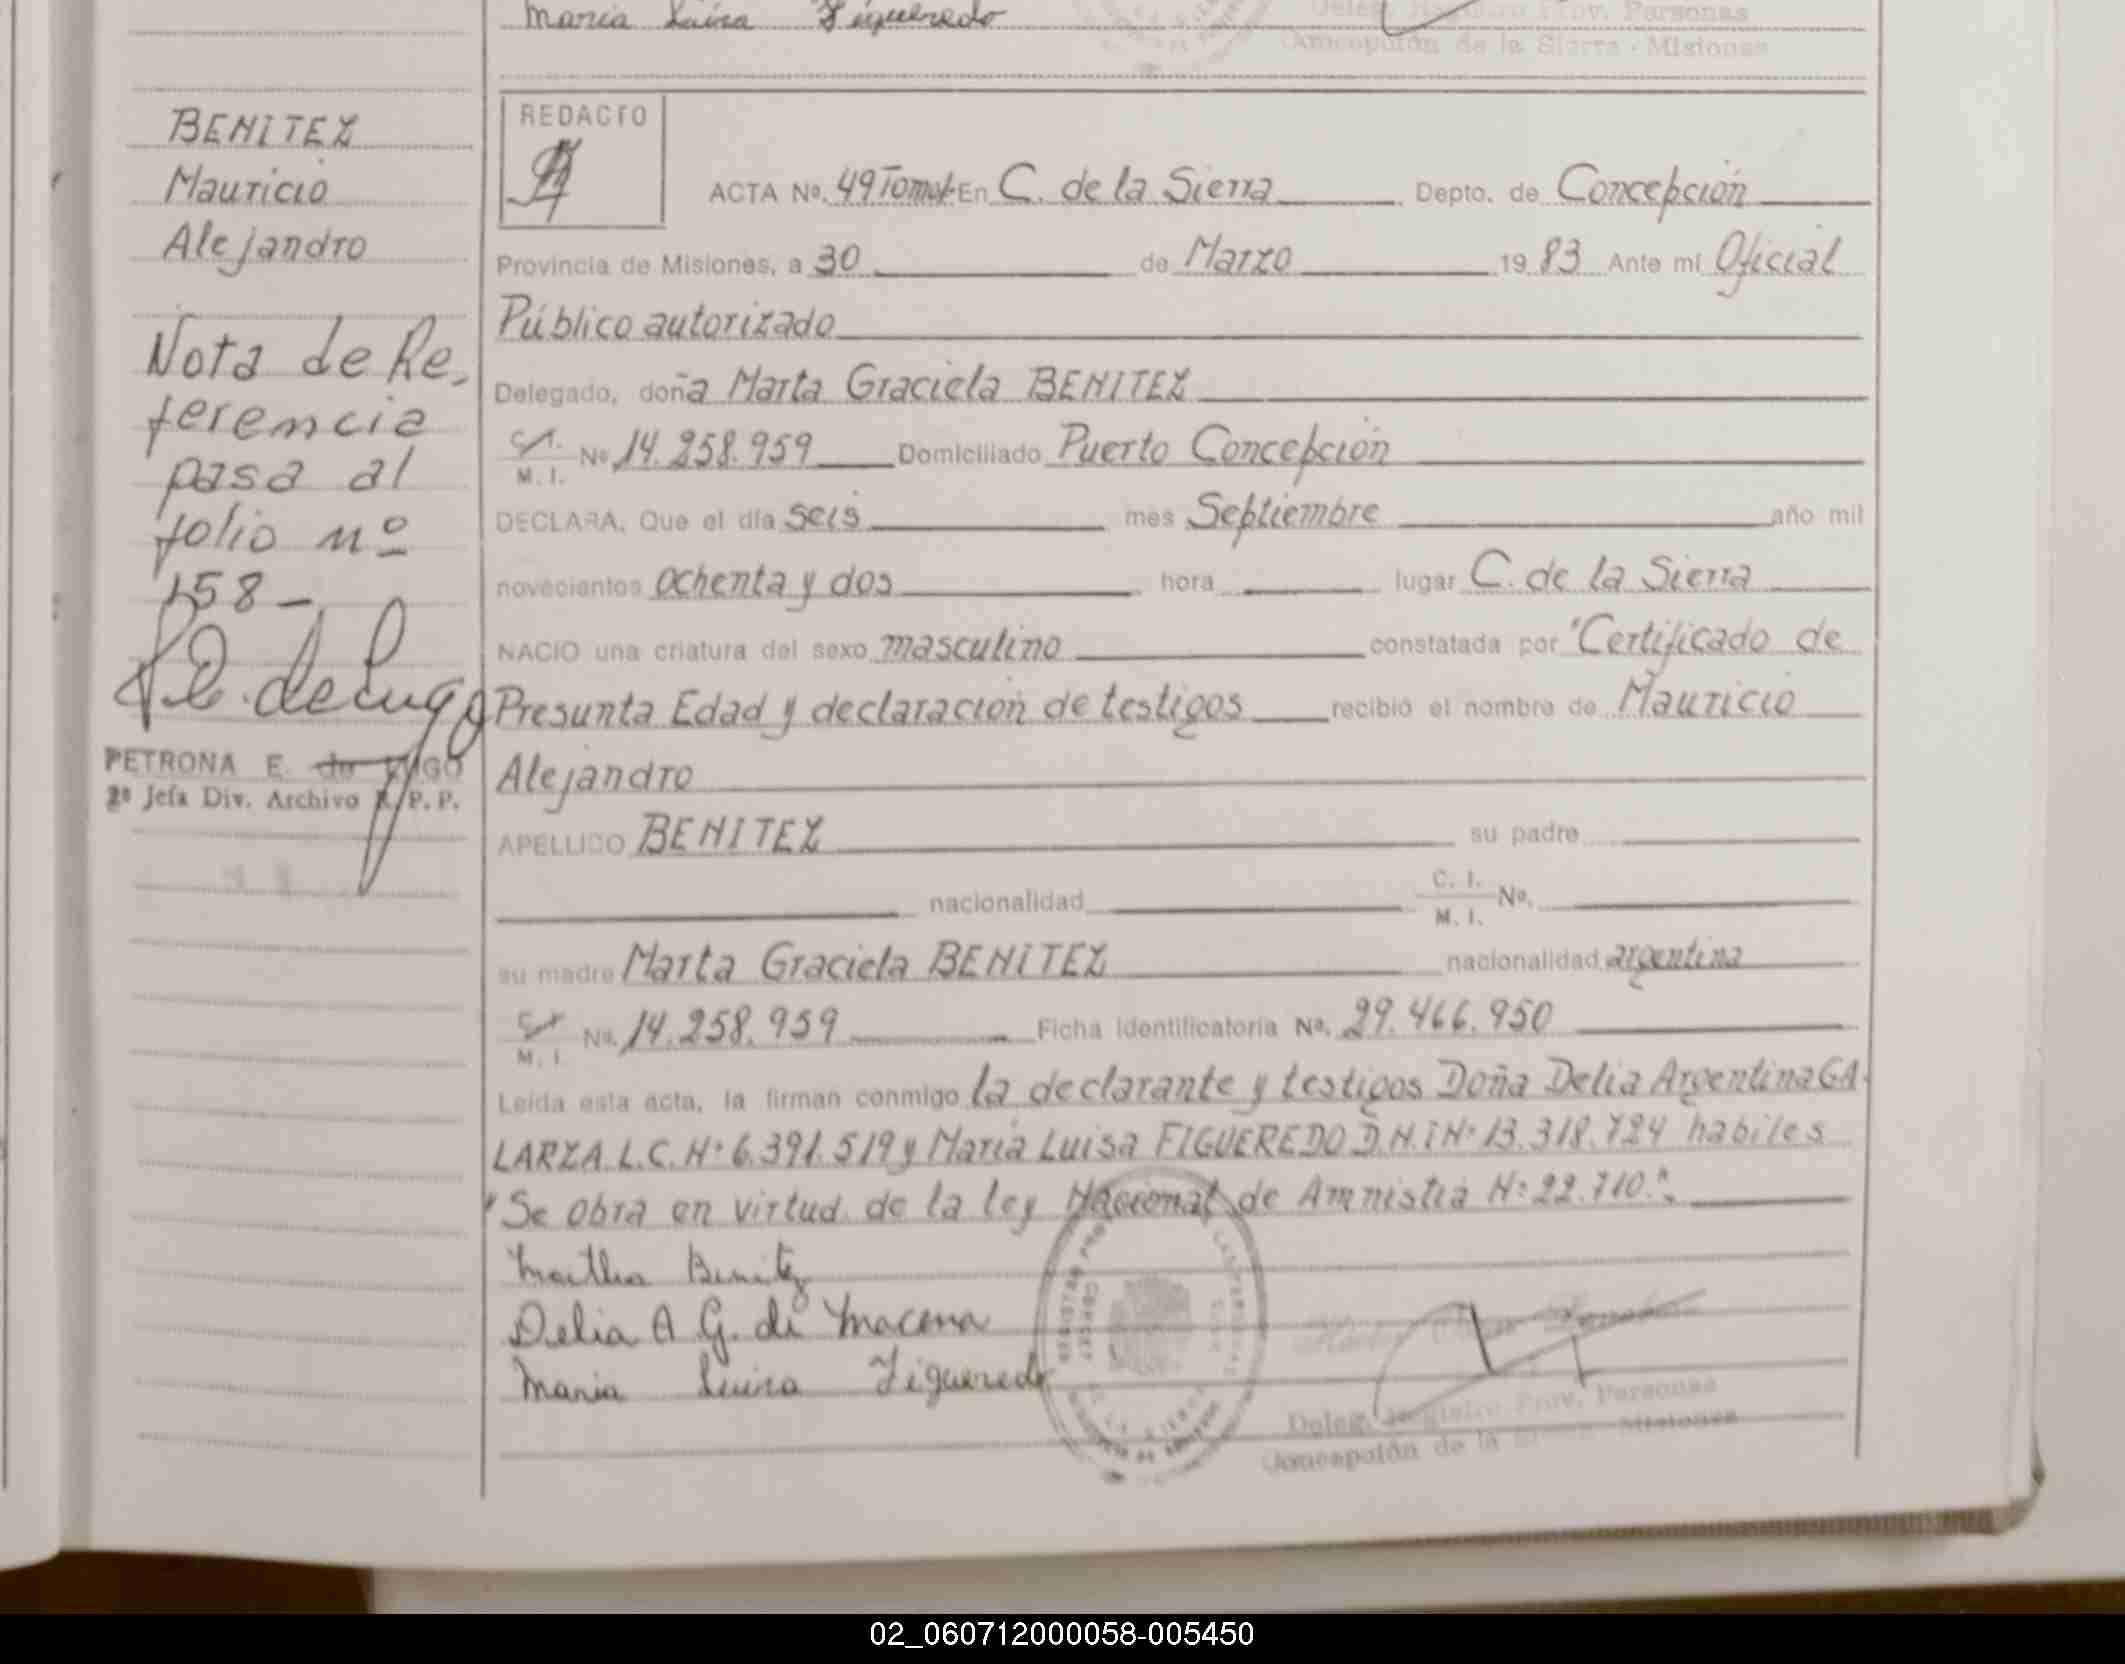 Maria Luisa Figueredo
Deleg. Registro Prov. Personas
Concepción de la Sierra - Misiones
BENITEZ
Mauricio
Alejandro
Nota de Re-
ferencia
pasa al
folio nº
158-
P. E. de Lugo
PETRONA E. de LUGO
2ª Jefa Div. Archivo R.P.P.
REDACTO
ACTA Nº. 49 Tomo I En C. de la Sierra Depto. de Concepción
Provincia de Misiones, a 30 de Marzo 19 83 Ante mí Oficial
Público autorizado
Delegado, doña Marta Graciela BENITEZ
C.I. M. I. Nº 14.258.959 Domiciliado Puerto Concepción
DECLARA, Que el día seis mes Septiembre año mil
novecientos ochenta y dos hora lugar C. de la Sierra
NACIO una criatura del sexo masculino constatada por "Certificado de
Presunta Edad y declaración de testigos recibió el nombre de Mauricio
Alejandro
APELLIDO BENITEZ su padre
nacionalidad C. I. M. I. Nº.
su madre Marta Graciela BENITEZ nacionalidad argentina
C.I. M. I. Nº. 14.258.959 Ficha identificatoria Nº. 29.466.950
Leída esta acta, la firman conmigo la declarante y testigos Doña Delia Argentina GA-
LARZA L.C. Nº 6.391.519 y María Luisa FIGUEREDO D.N.I Nº 13.318.724 habiles
"Se obra en virtud de la ley Nacional de Amnistía Nº 22.710."
Martha Benitez
Delia A G. de Macena
Maria Luisa Figueredo
Deleg. Registro Prov. Personas
Concepción de la Sierra - Misiones
02_060712000058-005450